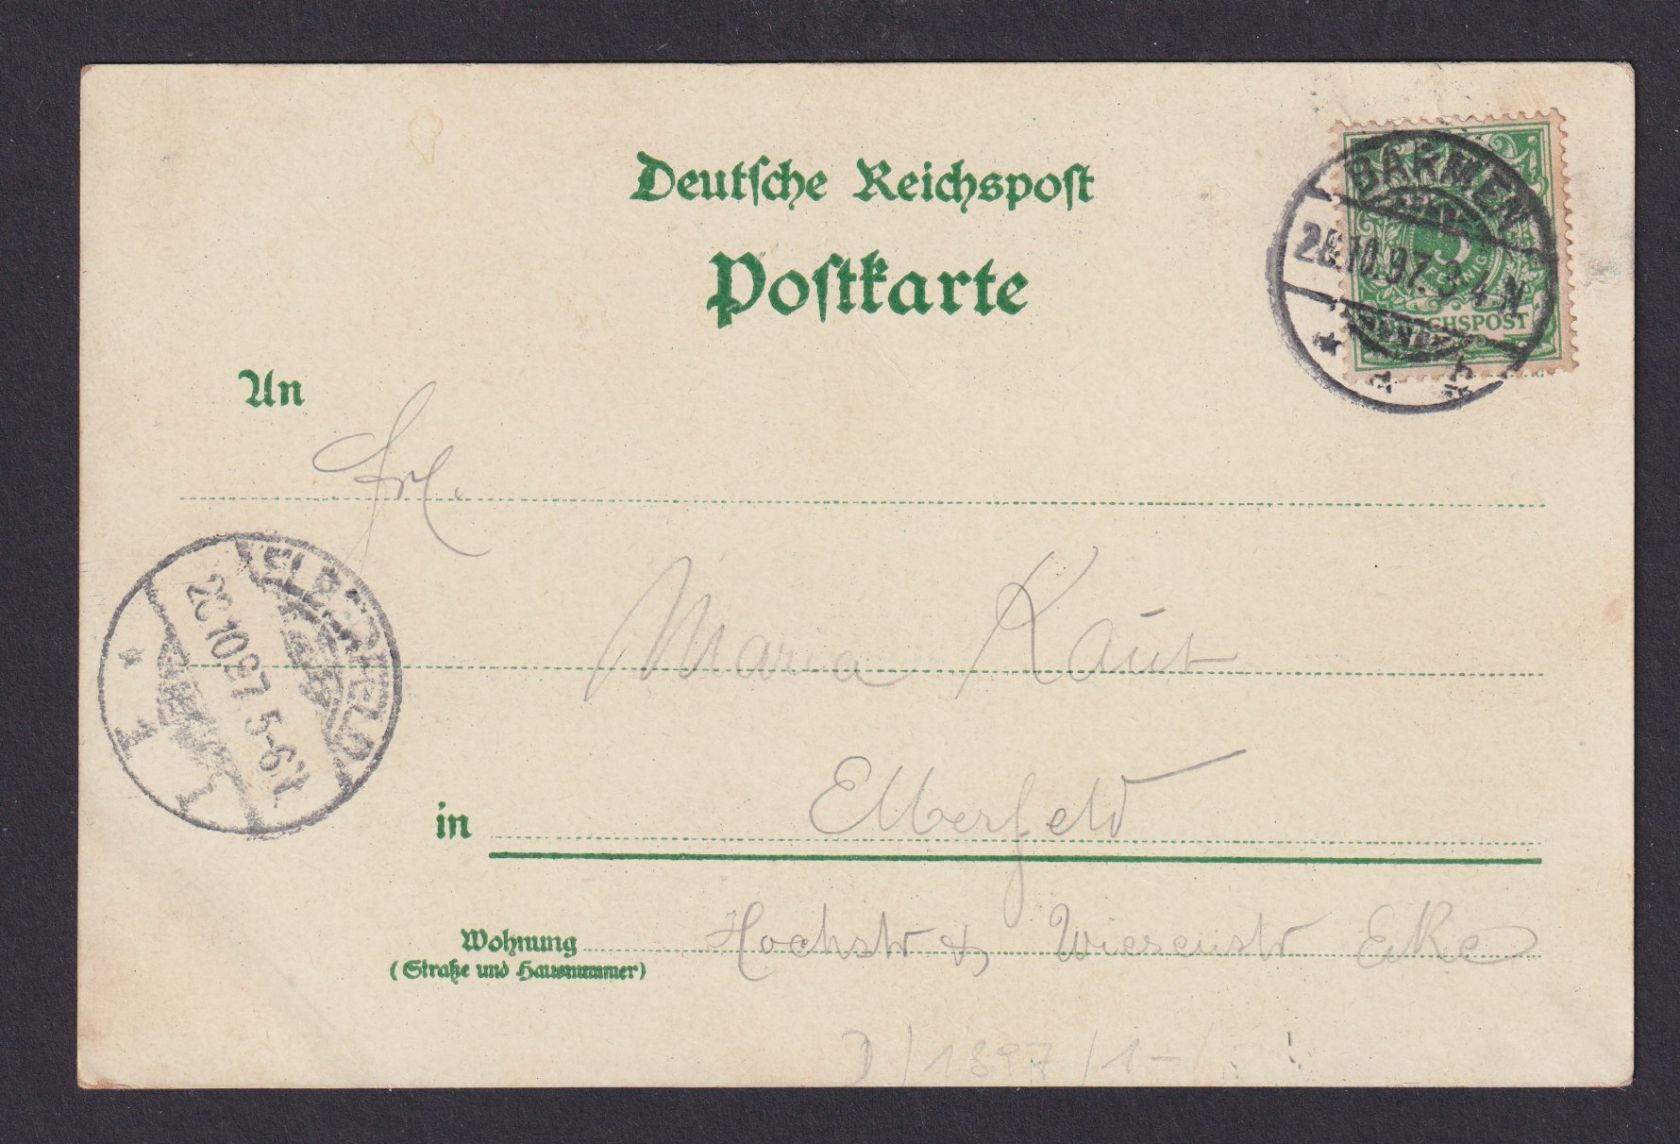 Deutsche Reichspost
Postkarte
BARMEN
10.97. 3-4 N
* *
5
PFENNIG
REICHSPOST
An
Frl.
ELBERFELD
10.97. 5-6 N
* 1 1
Maria Kaut
in Elberfeld
Wohnung Hochstr & Wiesenstr Ecke
(Straße und Hausnummer)
1897 / 1-